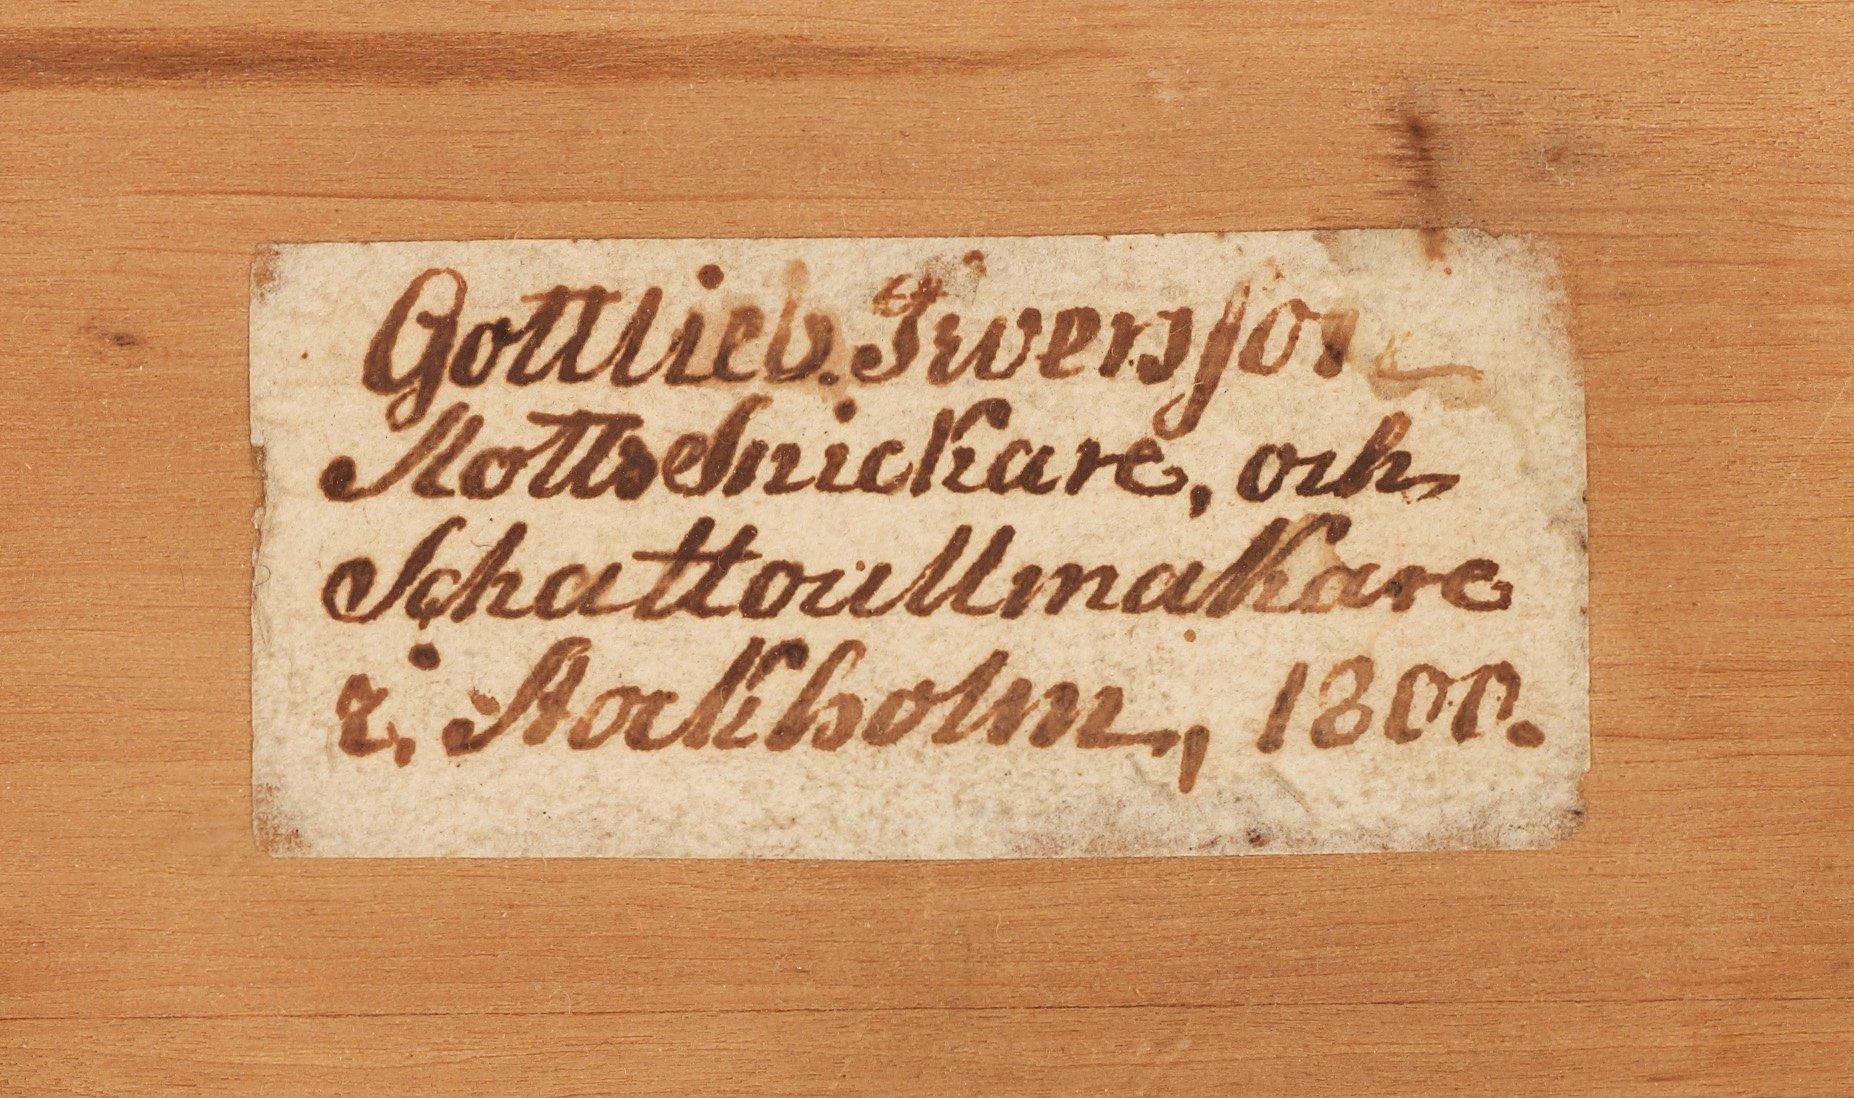 Gottlieb. Iwersson
Slottssnickare, och
Schattoullmakare
i, Stockholm, 1800.